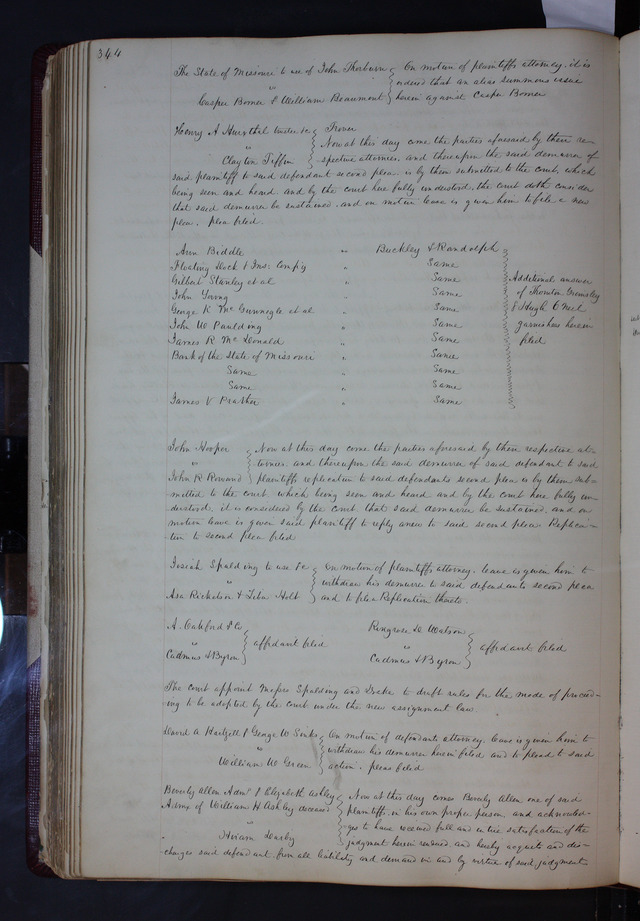 344
The State of Missouri to use of John Thorburn } On motion of plaintiffs attorney, it is
" ordered that an alias summons issue
Casper Bomer & William Beaumont } herein against Casper Bomer
Henry A Hurxthal trustee &c } Trover
" Now at this day come the parties aforesaid by their re-
Clayton Tiffin } spective attornies, and thereupon the said demurrer of
said plaintiff to said defendant second plea is by them submitted to the court, which
being seen and heard and by the court here fully understood, the court doth consider
that said demurrer be sustained, and on motion leave is given him to file a new
plea. plea filed.
Ann Biddle " Buckley & Randolph
Floating Dock & Ins: Comp'y " Same
Gilbert Stanley et al " Same } Additional answer
John Young " Same of Thornton Grimsley
George K Mc Gunnegle et al " Same & Hugh O Neil
John W Paulding " Same garnishees herein
James R Mc Donald " Same filed
Bank of the State of Missouri " Same
Same " Same
Same " Same
James V Prather " Same
John Hooper } Now at this day come the parties aforesaid by their respective at-
" tornies, and thereupon the said demurrer of said defendant to said
John R Rowand } plaintiffs replication to said defendants second plea is by them sub-
mitted to the court, which being seen and heard and by the court here fully un-
derstood, it is considered by the court that said demurrer be sustained, and on
motion leave is given said plaintiff to reply anew to said second plea. Replica-
tion to second plea filed
Josiah Spalding to use &c } On motion of plaintiffs attorney, leave is given him to
" withdraw his demurrer to said defendants second plea
Asa Ricketson & John Holt } and to file a Replication thereto.
A. Oakford & Co } Ringrose D Watson }
" affidavit filed " affidavit filed
Cadmus & Byron } Cadmus & Byron }
The court appoint Messrs Spalding and Drake to draft rules for the mode of proceed-
ing to be adopted by the court under the new assignment law.
David A Hartzell & George W Sinks } On motion of defendants attorney, leave is given him to
" withdraw his demurrer herein filed and to plead to said
William W Green } action. pleas filed
Beverly Allen Adm'r & Elizabeth Ashley } Now at this day comes Beverly Allen one of said
Admx of William H Ashley deceased plaintiffs in his own proper person, and acknowled-
" ges to have received full and entire satisfaction of the
Hiram Darby } judgment herein rendered, and hereby acquits and dis-
charges said defendant from all liability and demand in and by virtue of said judgment